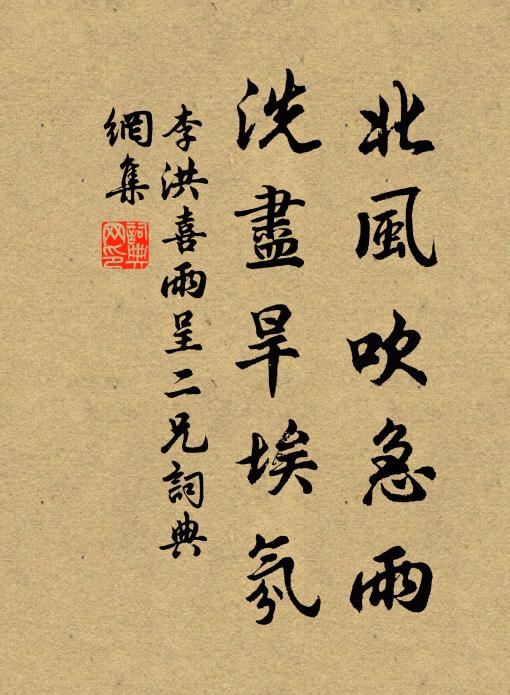 北風吹急雨
洗盡旱埃氛
李洪喜雨呈二兄詞典
網集
詞典
网印